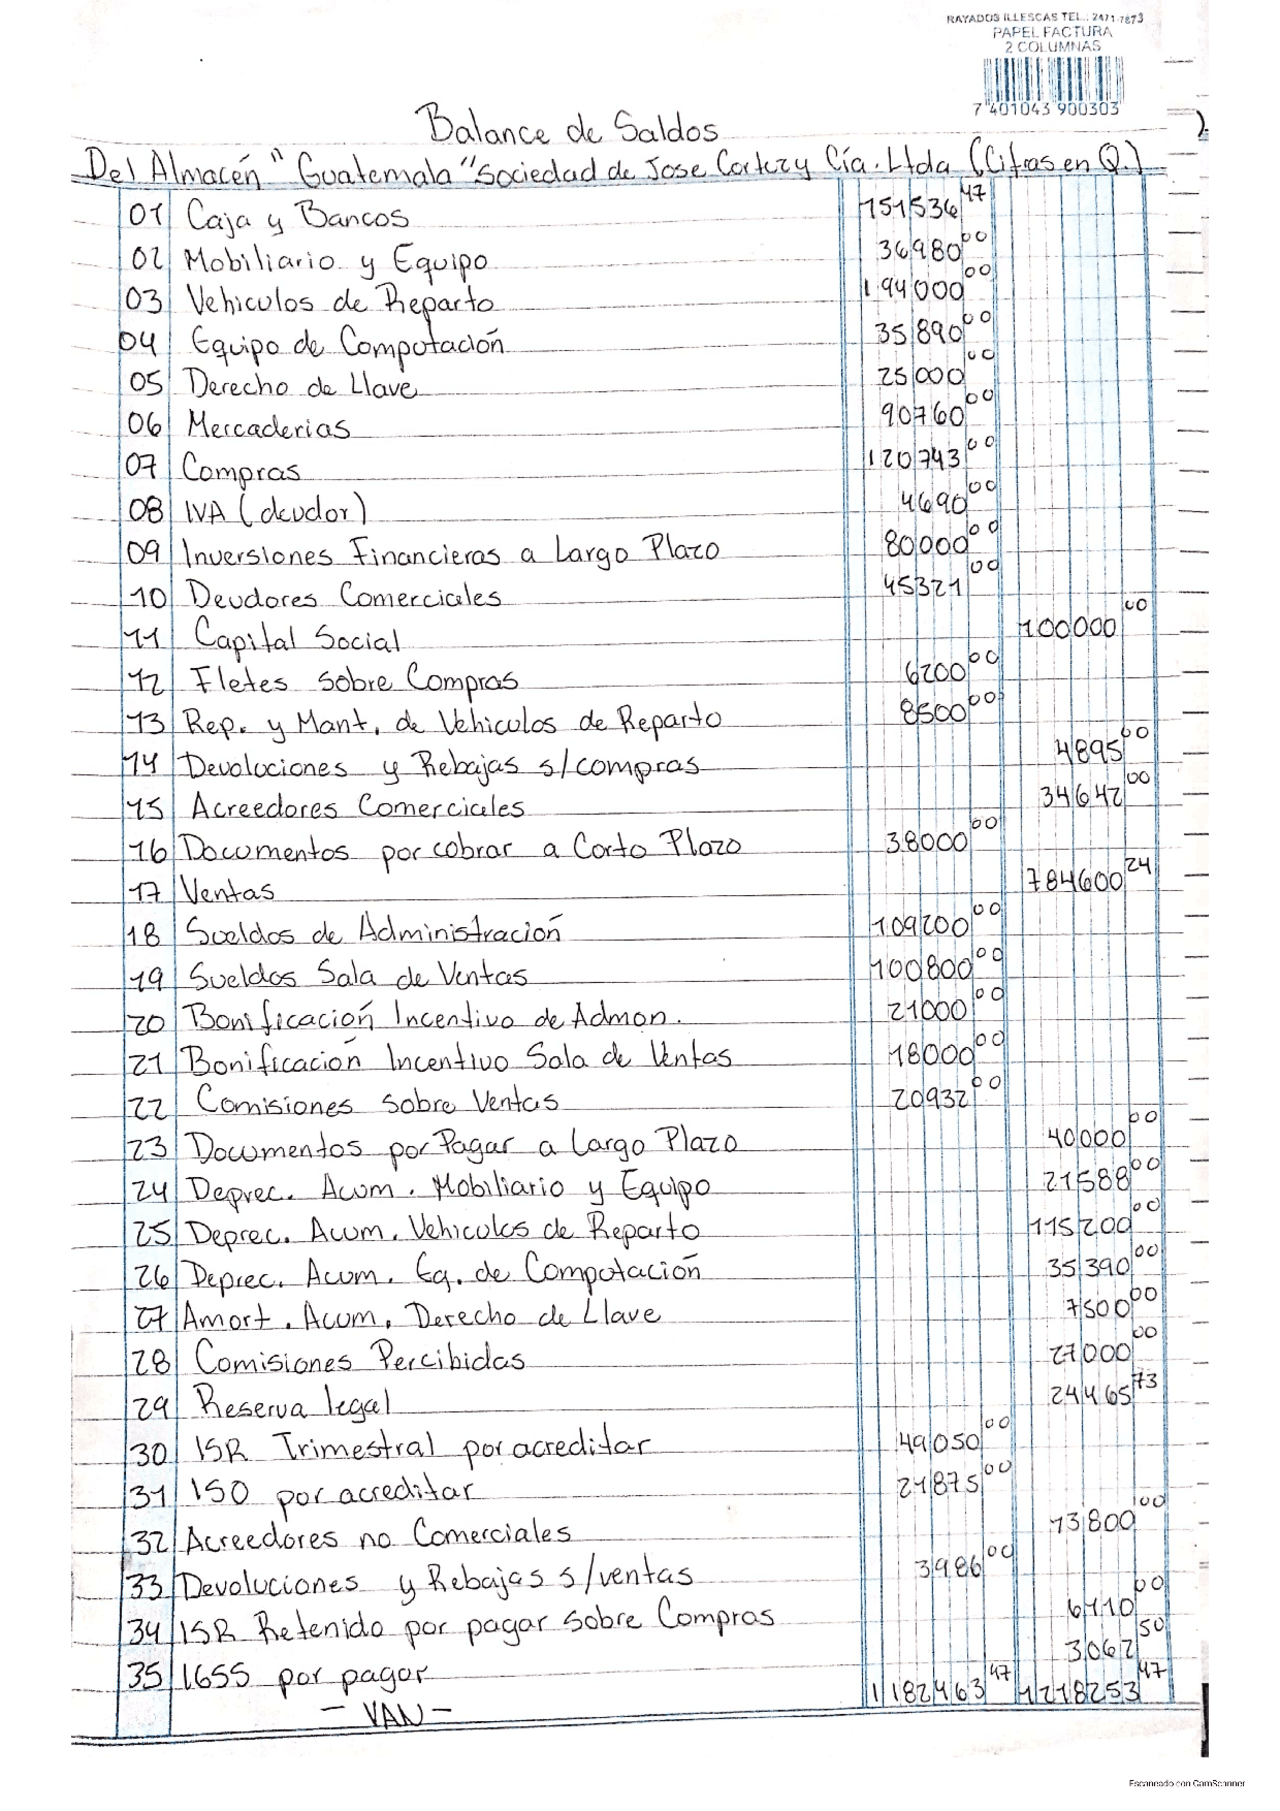 RAYADOS ILLESCAS TEL.: 2471-7873
PAPEL FACTURA
2 COLUMNAS
7 401043 900303
Balance de Saldos
Del Almacén "Guatemala" Sociedad de Jose Cortez y Cía. Ltda (Cifras en Q.)
01 Caja y Bancos 151536 47
02 Mobiliario y Equipo 36980 00
03 Vehiculos de Reparto 194000 00
04 Equipo de Computación 35890 00
05 Derecho de Llave 25000 00
06 Mercaderias 90760 00
07 Compras 120743 00
08 IVA (deudor) 4690 00
09 Inversiones Financieras a Largo Plazo 80000 00
10 Deudores Comerciales 45321 00
11 Capital Social 100000 00
12 Fletes sobre Compras 6200 00
13 Rep. y Mant. de Vehiculos de Reparto 8500 00
14 Devoluciones y Rebajas s/compras 4895 00
15 Acreedores Comerciales 34642 00
16 Documentos por cobrar a Corto Plazo 38000 00
17 Ventas 784600 24
18 Sueldos de Administración 109200 00
19 Sueldos Sala de Ventas 100800 00
20 Bonificación Incentivo de Admon. 21000 00
21 Bonificación Incentivo Sala de Ventas 18000 00
22 Comisiones sobre Ventas 20932 00
23 Documentos por Pagar a Largo Plazo 40000 00
24 Deprec. Acum. Mobiliario y Equipo 21588 00
25 Deprec. Acum. Vehiculos de Reparto 115200 00
26 Deprec. Acum. Eq. de Computación 35390 00
27 Amort. Acum. Derecho de Llave 7500 00
28 Comisiones Percibidas 27000 00
29 Reserva legal 24465 73
30 ISR Trimestral por acreditar 49050 00
31 ISO por acreditar 21875 00
32 Acreedores no Comerciales 13800 00
33 Devoluciones y Rebajas s/ventas 3986 00
34 ISR Retenido por pagar sobre Compras 6110 00
35 IGSS por pagar 3062 50
- VAN - 1182463 47 1218253 47
Escaneado con CamScanner